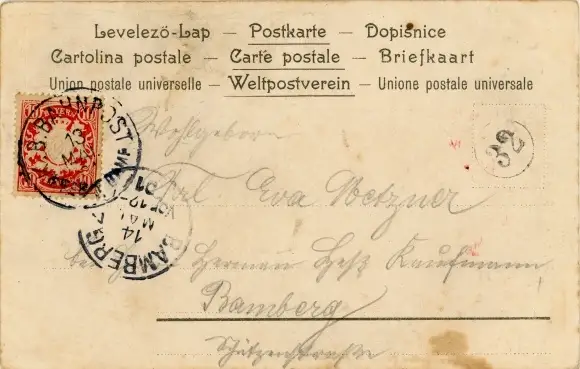 Levelező-Lap — Postkarte — Dopisnice
Cartolina postale — Carte postale — Briefkaart
Union postale universelle — Weltpostverein — Unione postale universale
BAHNPOST
13
MAI
32
Wohlgeboren
Frl. Eva Metzner
14
MAI
BAMBERG
Herman Heß Kaufmann
Bamberg
Schützenstraße